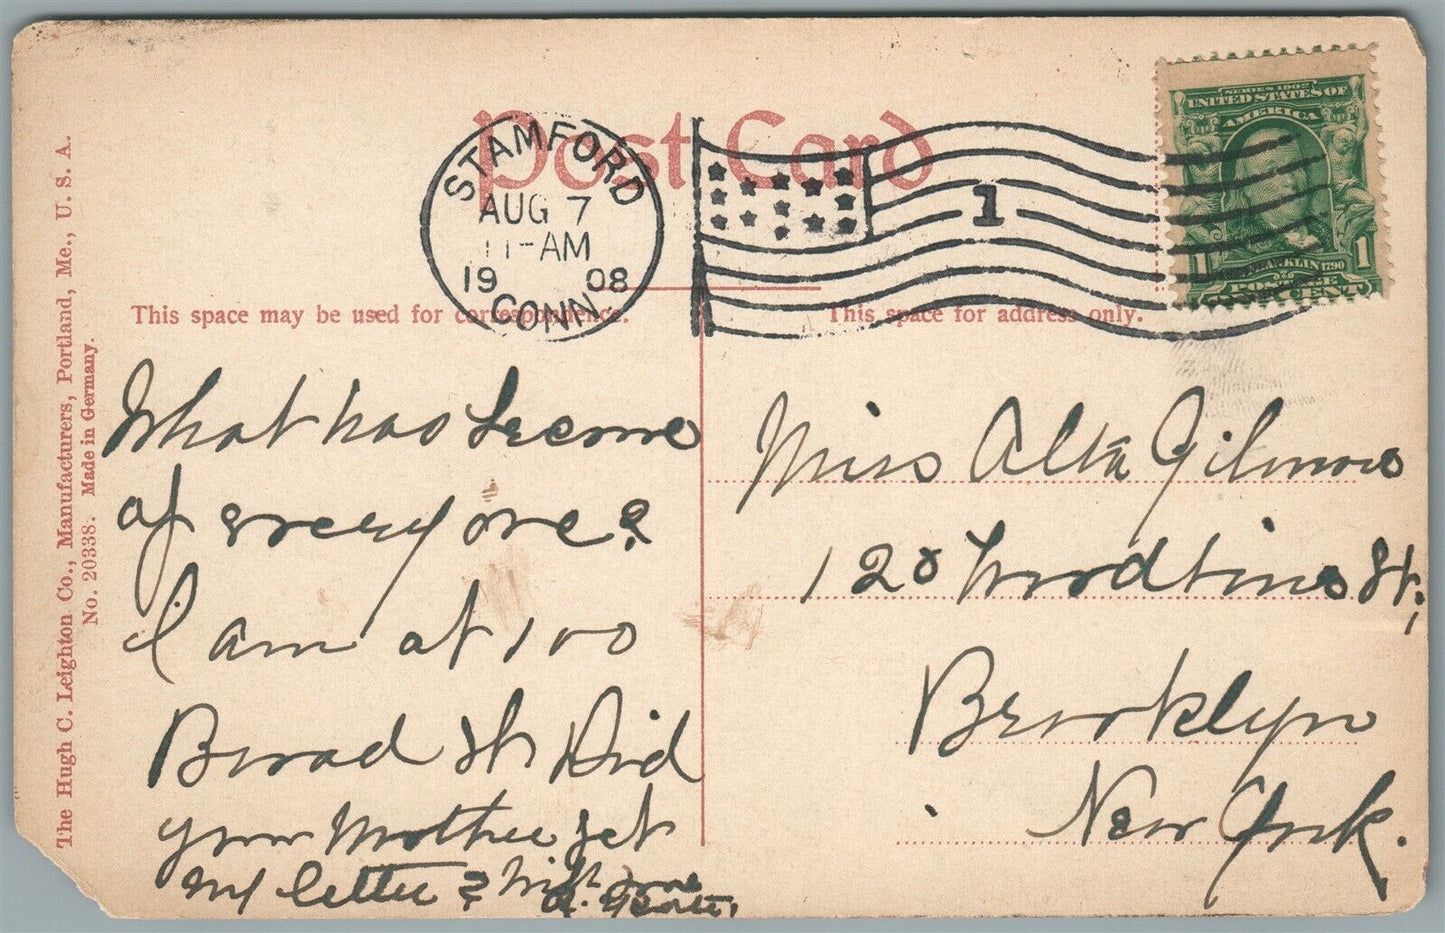 Post Card
STAMFORD
AUG 7
11-AM
1908
CONN.
1
SERIES 1902
UNITED STATES OF
AMERICA
FRANKLIN 1790
1 1
POSTAGE
CENT
This space may be used for correspondence.
This space for address only.
The Hugh C. Leighton Co., Manufacturers, Portland, Me., U. S. A.
No. 20338. Made in Germany.
What has become
of everyone?
I am at 100
Broad St Did
your Mother get
my letter? With love
Miss Alta Gilmore
120 Woodbine St.,
Brooklyn
New York.